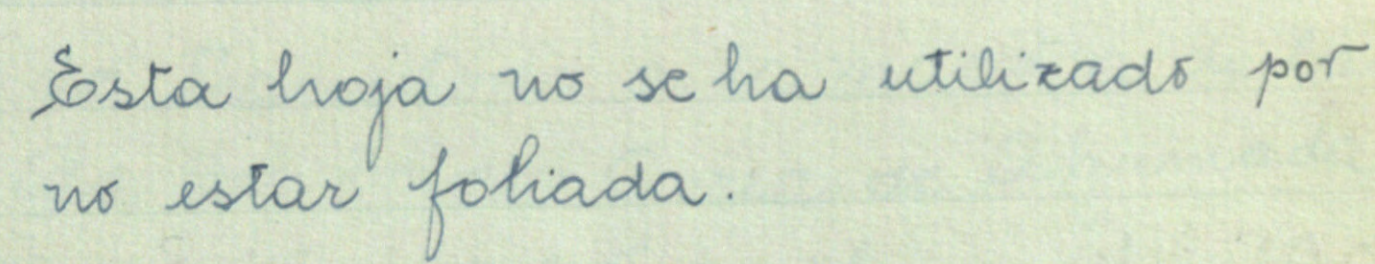 Esta hoja no se ha utilizado por
no estar foliada.